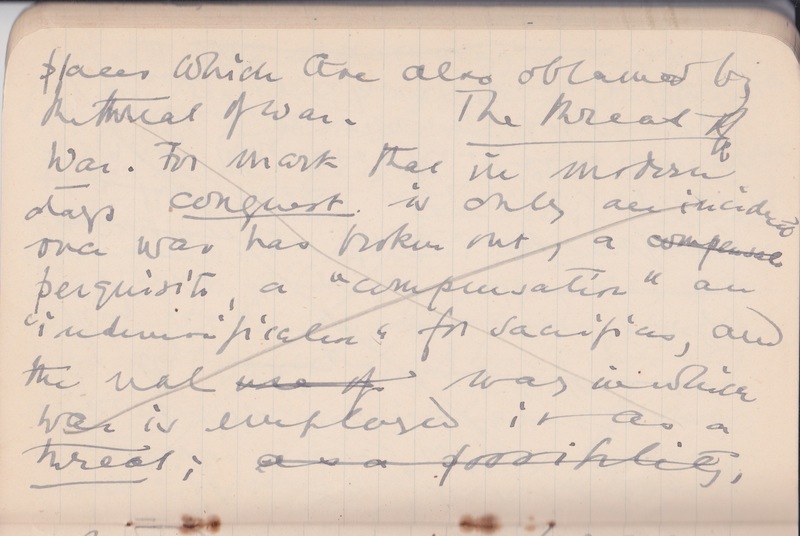 places which are also obtained by
the threat of war. The threat of
war. For mark that in modern
days conquest is only an incident
once war has broken out, a compensa
perquisite, a "compensation" an
"indemnification" for sacrifices, and
the real use of way in which
war is employed is as a
threat; as a possibility,